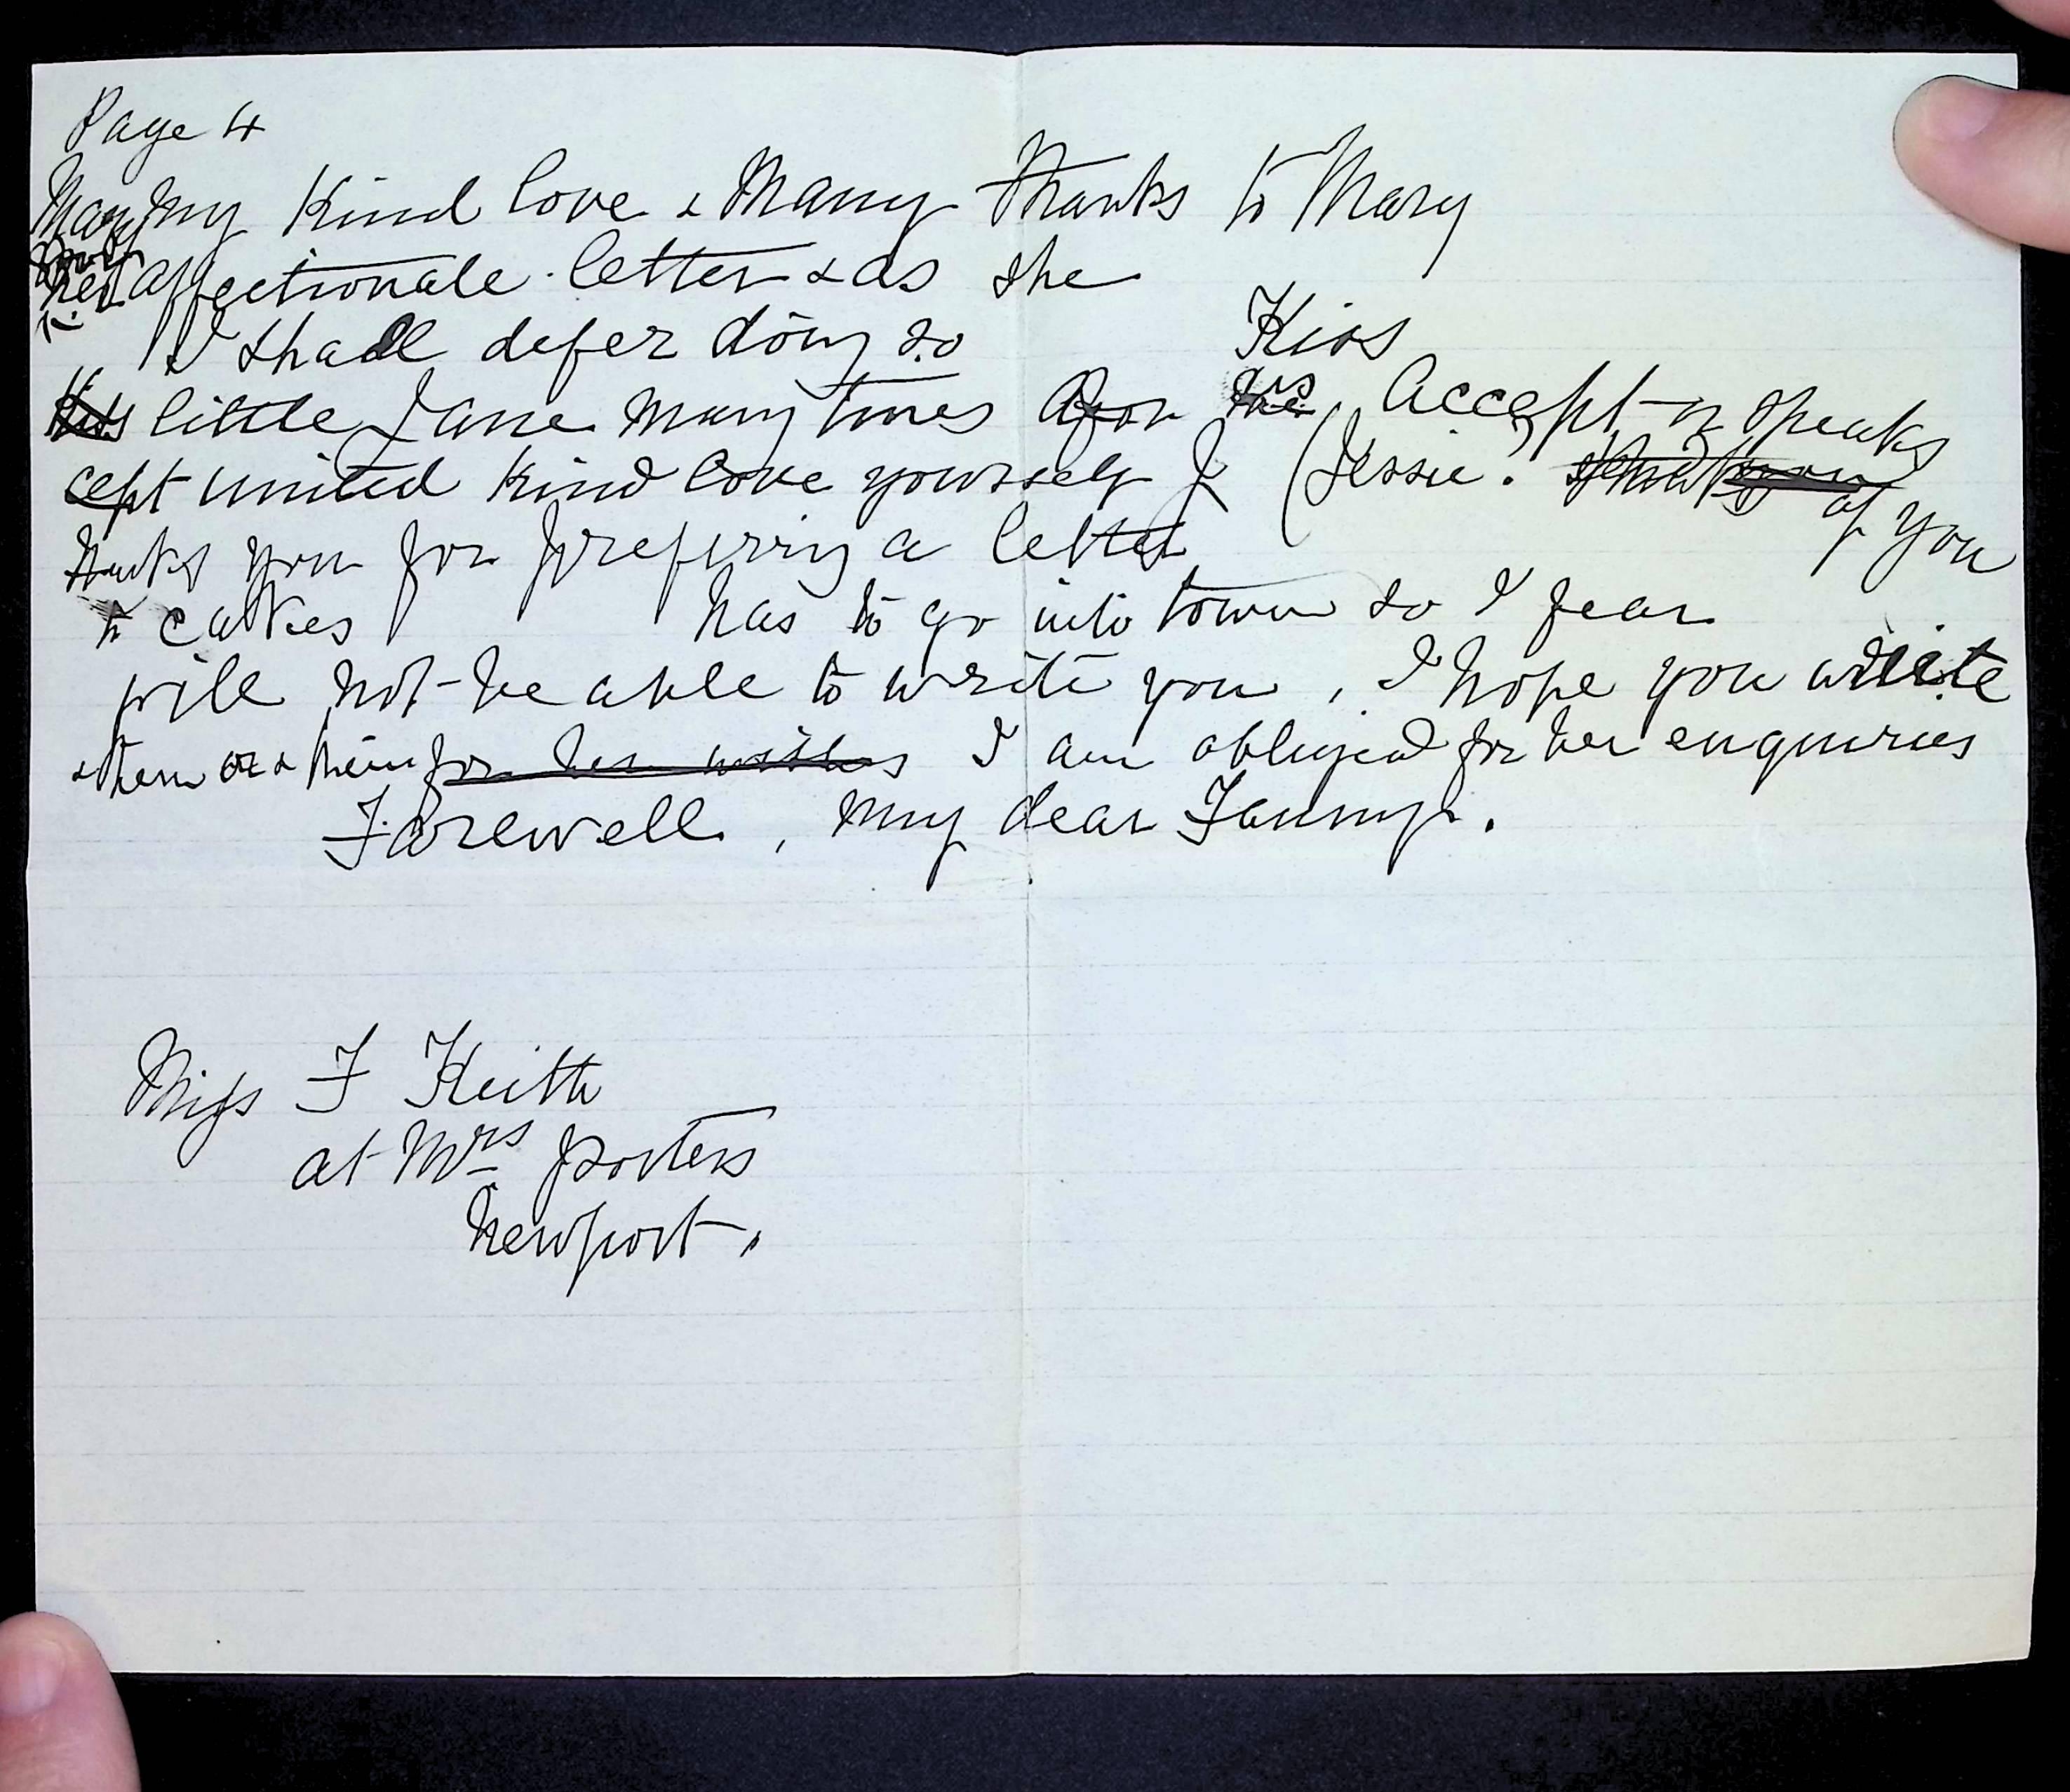 Page 4
my Kind love & Many Thanks to Mary
her affectionate letter & as she
I shall defer doing so Kiss
little Jane many times for us Accept speaks
cept united kind love yourself J (Jessie. of you
thanks you for preferring a letter
to cakes has to go into town so I fear
will not be able to write you, I hope you write
& them or & him for her wishes I am obliged for her enquiries
Farewell, my dear Fanny.
Miss F Keith
at Mrs Porters
Newport.